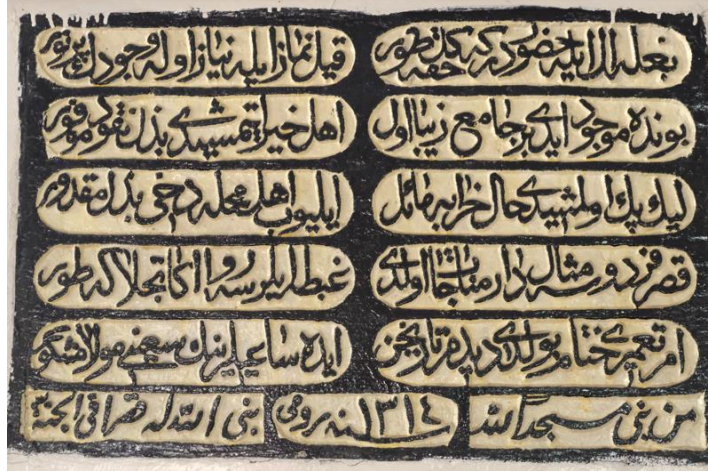 بغله ال ايله حضور در كه حقه طور قيل نماز ايله نياز اوله وجودك پر نور
بونده موجود ايدى بر جامع زيبا اول اهل خير ايتمشيدى بذل نقود موفور
ليك پك اولمشيدى حال خرابه مائل ايليوب اهل محله دخى بذل مقدور
قصر فردوسه مثال دار مناجات اولدى غبطه ايلرسه روا اكا تجلاكه طور
امر تعميرى ختام بولدى ديدم تاريخن ايده ساعيلرينك سعينى مولا مشكور
من بنى مسجدا لله سنه ١٣١٤ رومى بنى الله له قصرا فى الجنة